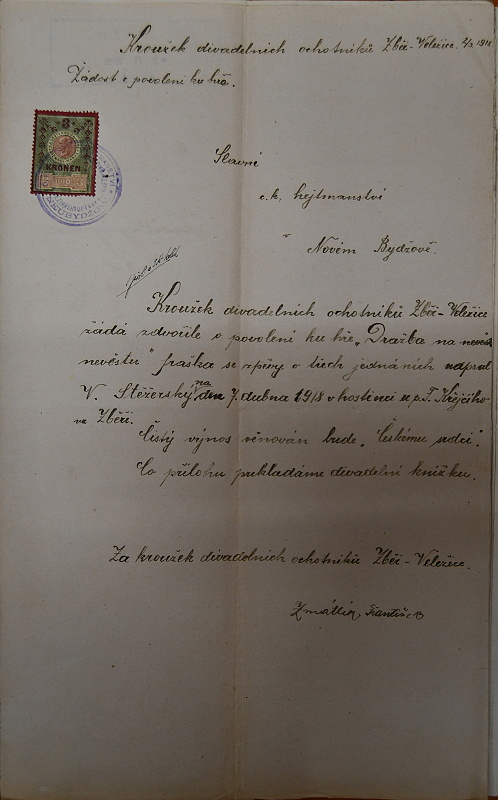 Kroužek divadelních ochotníků Zběř-Veležice. 2/3 1918.
Žádost o povolení ku hře.
3
KRONEN
NEUBYDŽOW
Slavné
c. k. hejtmanství
v Novém Bydžově.
Kroužek divadelních ochotníků Zběř-Veležice
žádá zdvořile o povolení ku hře „Dražba na nevěs
nevěstu" fraška se zpěvy o třech jednáních napsal
V. Stěžerský, na den 7. dubna 1918 v hostinci u p. F. Krejčího
ve Zběři.
Čistý výnos věnován bude „Českému srdci".
Co přílohu přikládáme divadelní knížku.
Za kroužek divadelních ochotníků Zběř-Veležice.
Zmátlík František